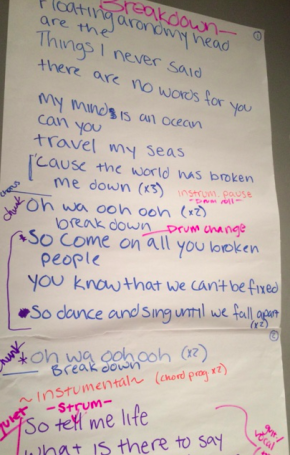 Breakdown-
Floating around my head
are the
Things I never said
there are no words for you
my mind is an ocean
can you
travel my seas
'cause the world has broken
me down (x3) instrum. pause
- Drum roll -
chorus
chunk
oh wa ooh ooh (x2)
break down Drum change
*So come on all you broken
people
you know that we can't be fixed
*So dance and sing until we fall apart
(x2)
chunk
*oh wa ooh ooh (x2)
Breakdown
~instumental~ (chord prog x2)
-Strum-
So tell me life
what is there to say